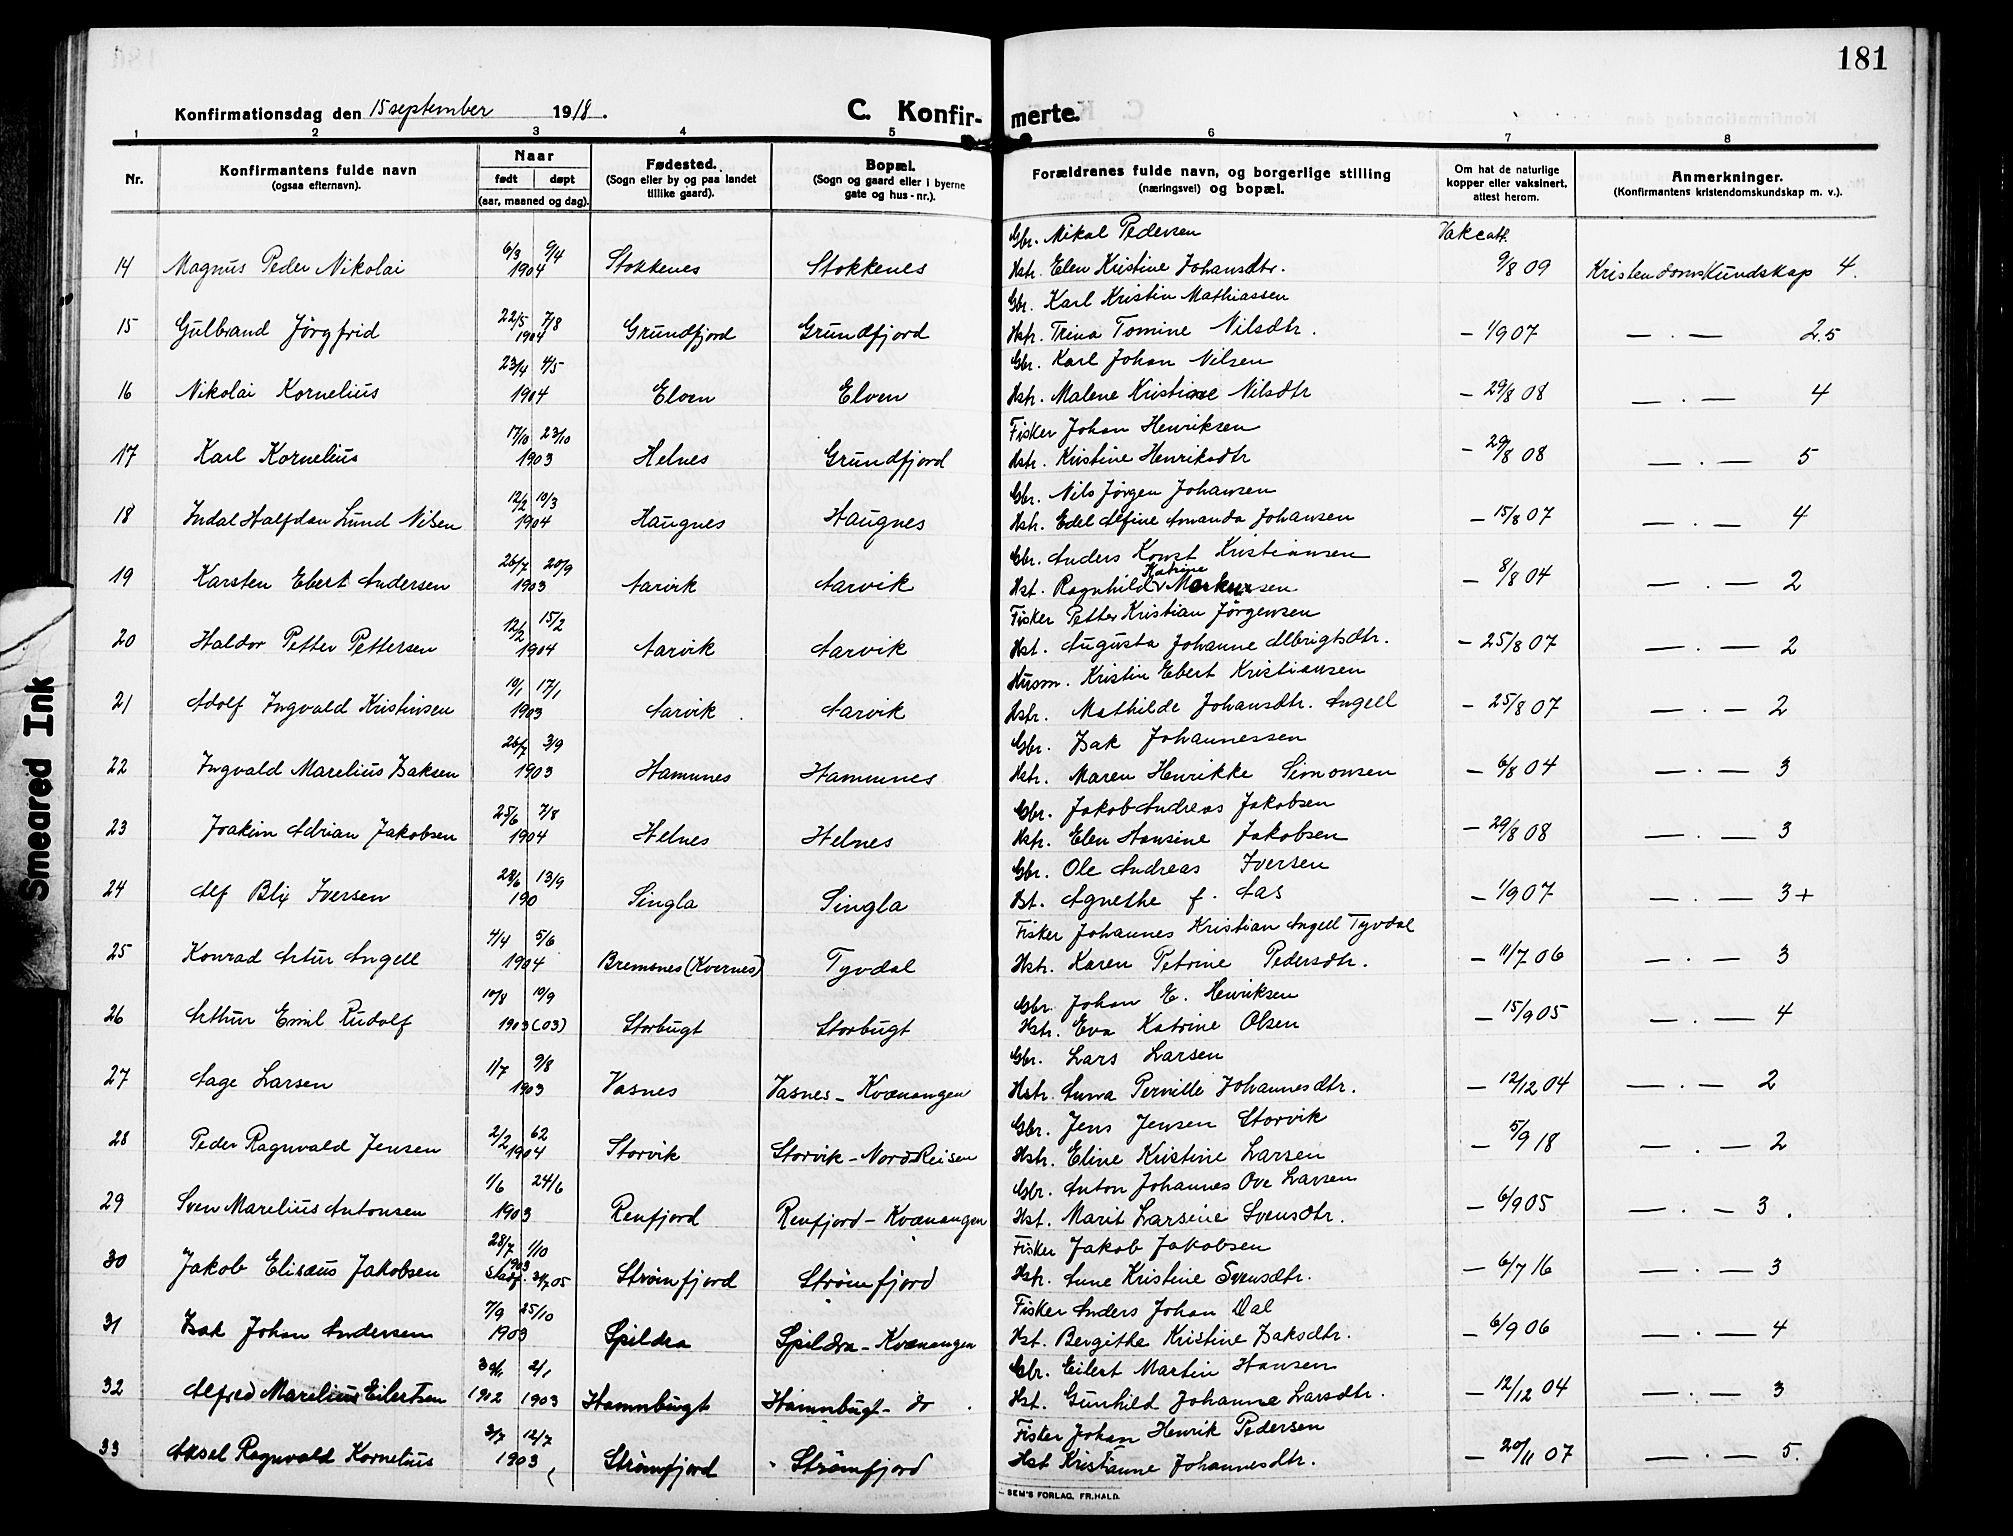 181
Konfirmationsdag den 15 september 1918.
C. Konfir-
merte.
1 2 3 4 5 6 7 8
Nr.
Konfirmantens fulde navn
(ogsaa efternavn).
Naar
født døpt
(aar, maaned og dag).
Fødested.
(Sogn eller by og paa landet
tillike gaard).
Bopæl.
(Sogn og gaard eller i byerne
gate og hus-nr.).
Forældrenes fulde navn, og borgerlige stilling
(næringsvei) og bopæl.
Om hat de naturlige
kopper eller vaksinert,
attest herom.
Anmerkninger.
(Konfirmantens kristendomskundskap m. v.).
Gbr. Mikal Pedersen Vakcatt.
14 Magnus Peder Nikolai 6/3 9/4 1904 Stokkenes Stokkenes Hstr. Elen Kristine Johansdtr. 9/8 09 Kristendomskundskap 4.
Gbr. Karl Kristin Mathiassen
15 Gulbrand Jörgfrid 22/5 7/8 1904 Grundfjord Grundfjord Hstr. Trina Tomine Nilsdtr. – 1/9 07 — . — 2.5
Gbr. Karl Johan Nilsen
16 Nikolai Kornelius 23/4 4/5 1904 Elven Elven Hstr. Malene Kristine Nilsdtr – 29/8 08 — . — 4
Fisker Johan Henriksen
17 Karl Kornelius 17/10 23/10 1903 Helnes Grundfjord Hstr. Kristine Henriksdtr – 29/8 08 — . — 5
Gbr. Nils Jörgen Johansen
18 Indal Halfdan Lund Nilsen 12/2 10/3 1904 Haugnes Haugnes Hstr. Edel Alfine Amanda Johansen – 15/8 07 — . — 4
Gbr. Anders Konst Kristiansen
19 Karsten Ebert Andersen 26/7 20/9 1903 Aarvik Aarvik Hst. Ragnhild Katrine Markussen – 8/8 04 — . — 2
Fisker Petter Kristian Jörgensen
20 Haldor Petter Pettersen 12/2 15/2 1904 Aarvik Aarvik Hst. Augusta Johanne Albrigtsdtr. – 25/8 07 — . — 2
Husm. Kristin Ebert Kristiansen
21 Adolf Ingvald Kristinsen 10/1 17/1 1903 Aarvik Aarvik Hstr. Mathilde Johansdtr. Angell – 25/8 07 — . — 2
Gbr. Isak Johannessen
22 Ingvald Marelius Isaksen 26/7 3/9 1903 Hamnes Hamnnes Hstr. Maren Henrikke Simonsen – 6/8 04 — . — 3
Gbr. Jakob Andreas Jakobsen
23 Joakim Adrian Jakobsen 25/6 7/8 1904 Helnes Helnes Hstr. Elen Hansine Jakobsen – 29/8 08 — . — 3
Gbr. Ole Andreas Iversen
24 Alf Blix Iversen 28/6 13/9 190 Singla Singla Hst. Agnethe f. Aas – 1/9 07 — . — 3+
Fisker Johannes Kristian Angell Tyvdal
25 Konrad Artur Angell 4/4 5/6 1904 Bremsnes (Kvernes) Tyvdal Hstr. Karen Petrine Pedersdtr. – 11/7 06 — . — 3
Gbr. Johan E. Henriksen
26 Arthur Emil Rudolf 10/8 10/9 1903 (03) Storbugt Storbugt Hstr. Eva Katrine Olsen – 15/9 05 — . — 4
Gbr. Lars Larsen
27 Aage Larsen 1/7 9/8 1903 Vasnes Vasnes – Kvænangen Hstr. Anna Pernille Johannesdtr. – 12/12 04 — . — 2
Gbr. Jens Jensen Storvik
28 Peder Ragnvald Jensen 2/2 62 1904 Storvik Storvik – Nord Reisen Hstr. Eline Kristine Larsen – 5/9 18 — . — 2
Gbr. Anton Johannes Ove Larsen
29 Sven Marelius Antonsen 1/6 24/6 1903 Renfjord Renfjord – Kvænangen Hst. Marit Larsine Svensdtr. – 6/9 05 — . — 3.
Fisker Jakob Jakobsen
30 Jakob Elisæus Jakobsen 28/7 1/10 1903 Stadf. 31/7 05 Strømfjord Strømfjord Hstr. Anne Kristine Svensdtr. – 6/7 16 — . — 3
Fisker Anders Johan Dal
31 Isak Johan Andersen 7/9 25/10 1903 Spildra Spildra – Kvænangen Hst. Bergithe Kristine Isaksdtr. – 6/9 06 — . — 4
Gbr. Eilert Martin Hansen
32 Alfred Marelius Eilertsen 30/11 2/1 1902 1903 Hamnbugt Hamnbugt – do. Hst. Gunhild Johanne Larsdtr. – 12/12 04 — . — 3
Fisker Johan Henrik Pedersen
33 Aksel Ragnvald Kornelius 3/7 12/7 1903 Strømfjord Strømfjord Hst Kristianne Johannesdtr. – 20/11 07 — . — 5.
SEM'S FORLAG, FR.HALD.
Smeared Ink